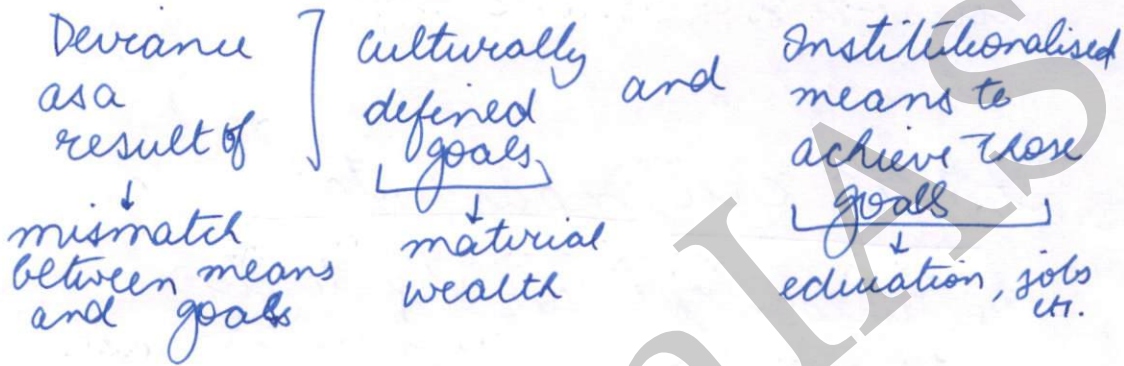 Deviance
as a
result of
↓
mismatch
between means
and goals
culturally
defined
goals
↓
material
wealth
and
Institutionalised
means to
achieve those
goals
↓
education, jobs
etc.
IAS